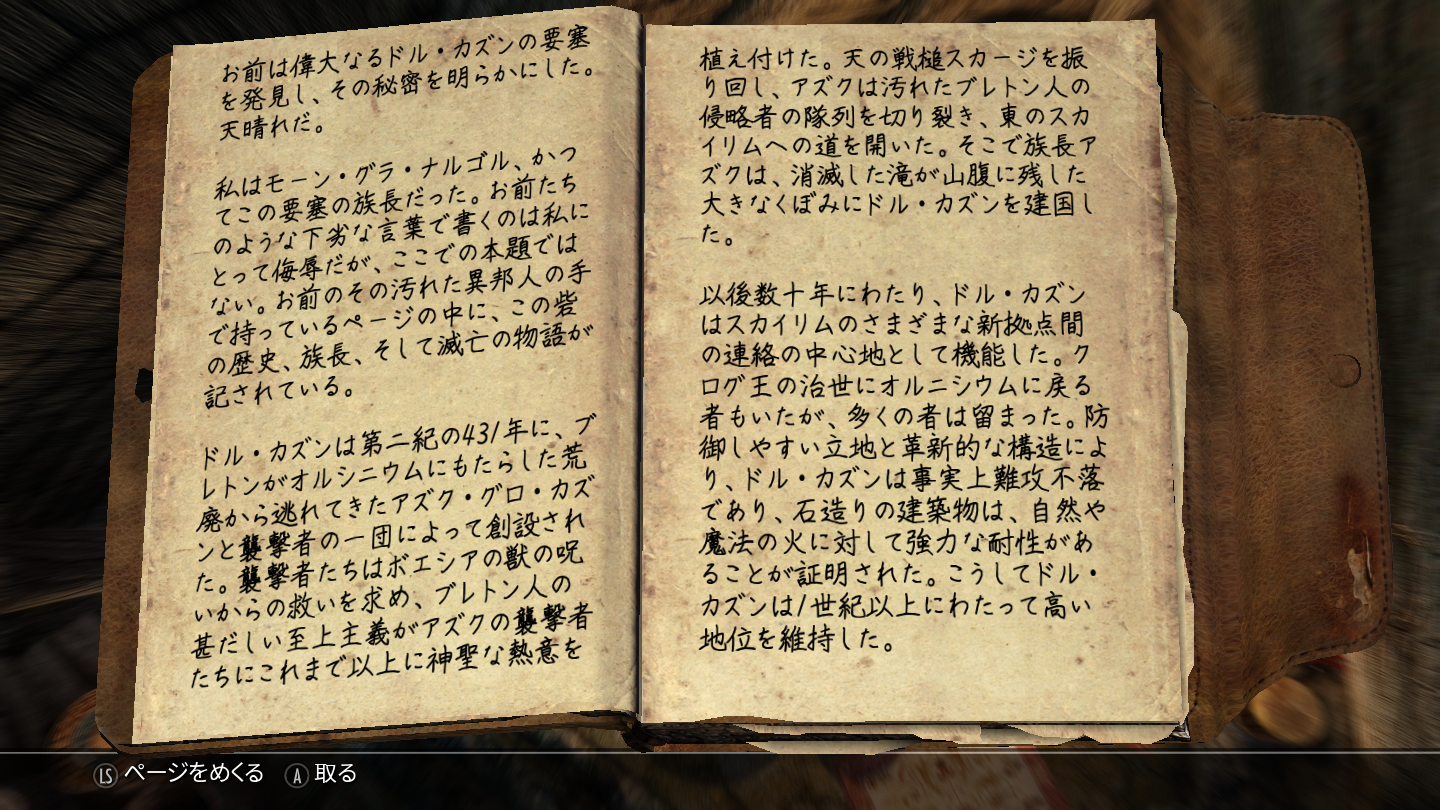 お前は偉大なるドル・カズンの要塞
を発見し、その秘密を明らかにした。
天晴れだ。
私はモーン・グラ・ナルゴル、かつ
てこの要塞の族長だった。お前たち
のような下劣な言葉で書くのは私に
とって侮辱だが、ここでの本題では
ない。お前のその汚れた異邦人の手
で持っているページの中に、この砦
の歴史、族長、そして滅亡の物語が
記されている。
ドル・カズンは第二紀の431年に、ブ
レトンがオルシニウムにもたらした荒
廃から逃れてきたアズク・グロ・カズ
ンと襲撃者の一団によって創設され
た。襲撃者たちはボエシアの獣の呪
いからの救いを求め、ブレトン人の
甚だしい至上主義がアズクの襲撃者
たちにこれまで以上に神聖な熱意を
植え付けた。天の戦槌スカージを振
り回し、アズクは汚れたブレトン人の
侵略者の隊列を切り裂き、東のスカ
イリムへの道を開いた。そこで族長ア
ズクは、消滅した滝が山腹に残した
大きなくぼみにドル・カズンを建国し
た。
以後数十年にわたり、ドル・カズン
はスカイリムのさまざまな新拠点間
の連絡の中心地として機能した。ク
ログ王の治世にオルニシウムに戻る
者もいたが、多くの者は留まった。防
御しやすい立地と革新的な構造によ
り、ドル・カズンは事実上難攻不落
であり、石造りの建築物は、自然や
魔法の火に対して強力な耐性があ
ることが証明された。こうしてドル・
カズンは1世紀以上にわたって高い
地位を維持した。
LS ページをめくる A 取る